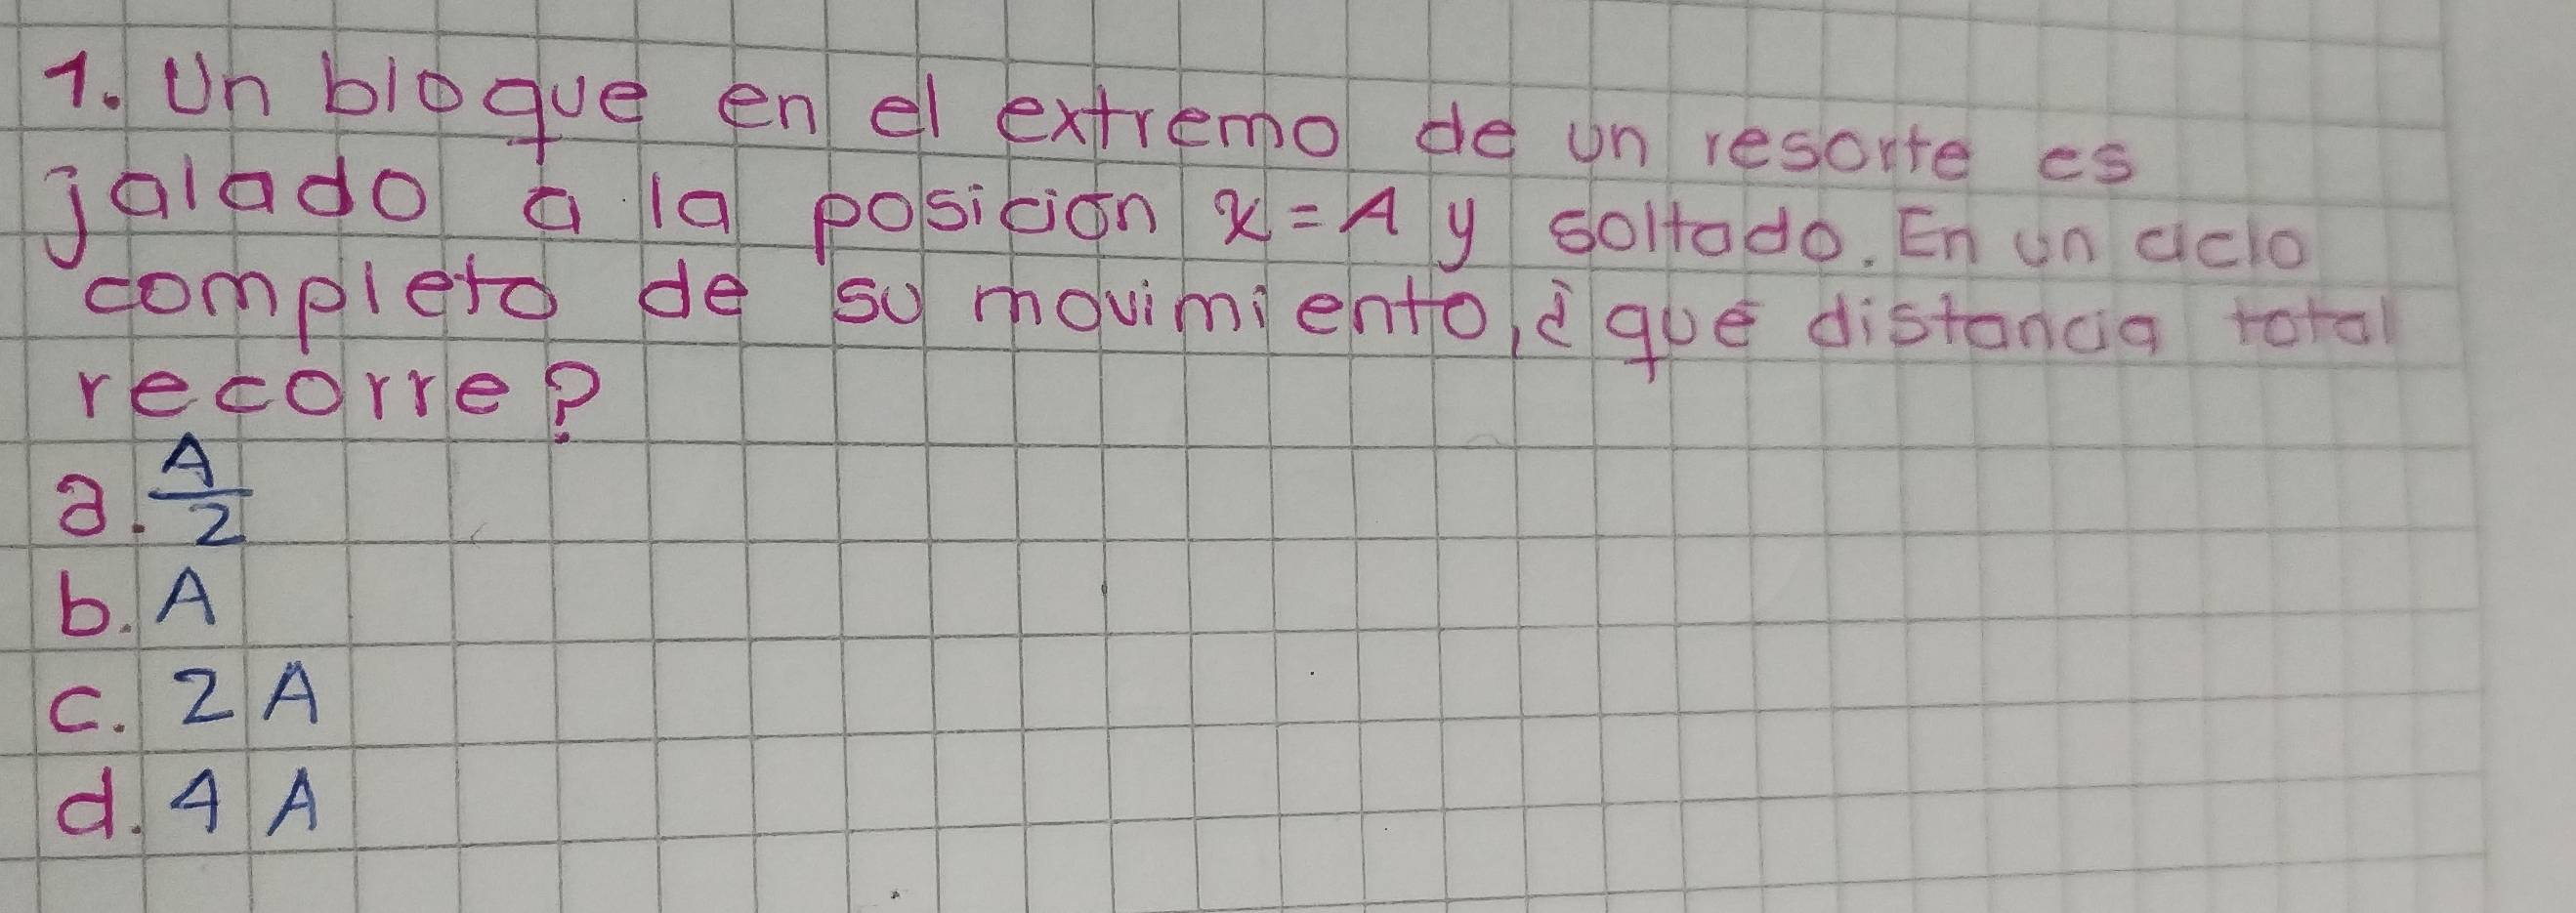 1. Un bloque en el extremo de un resorte es
jalado a la posición x = A y soltado. En un ciclo
completo de su movimiento, ¿qué distancia total
recorre?
a. A/2
b. A
c. 2 A
d. 4 A